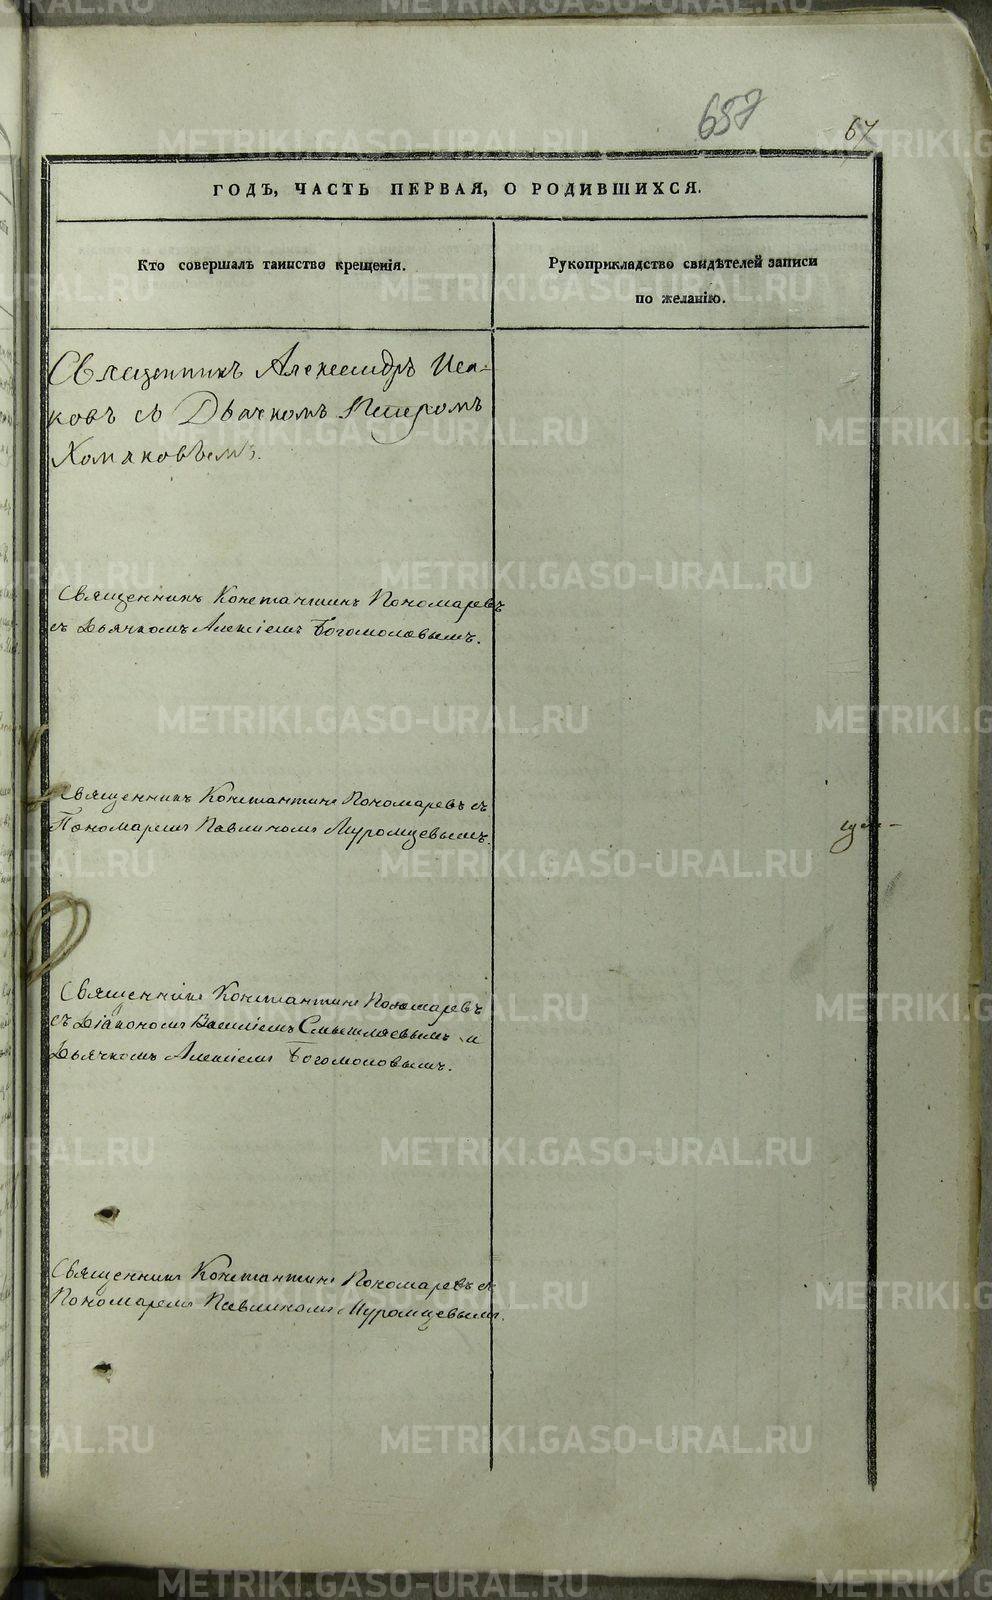 657
67
ГОДЪ, ЧАСТЬ ПЕРВАЯ, О РОДИВШИХСЯ.
Кто совершалъ таинство крещенія.
Рукоприкладство свидѣтелей записи
по желанію.
Священникъ Александръ Иса-
ковъ съ Дьячкомъ Петромъ
Хомяковымъ.
Священникъ Константинъ Пономаревъ
съ Дьячкомъ Алексіемъ Богомоловымъ.
Священникъ Константинъ Пономаревъ съ
Пономаремъ Павлиномъ Муромцевымъ.
Священникъ Константинъ Пономаревъ
съ Діакономъ Василіемъ Смышляевымъ и
Дьячкомъ Алексіемъ Богомоловымъ.
Священникъ Константинъ Пономаревъ съ
Пономаремъ Павлиномъ Муромцевымъ.
METRIKI.GASO-URAL.RU